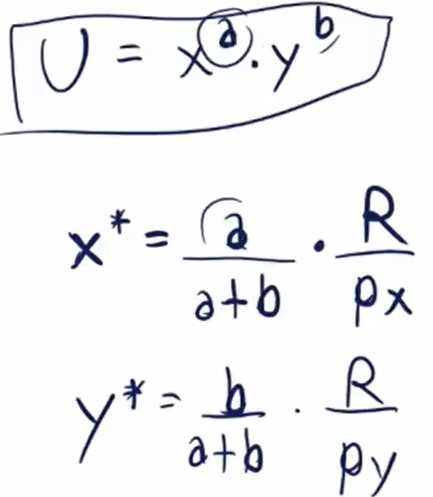 U = x^a · y^b
x* = a/(a+b) · R/px
y* = b/(a+b) · R/py